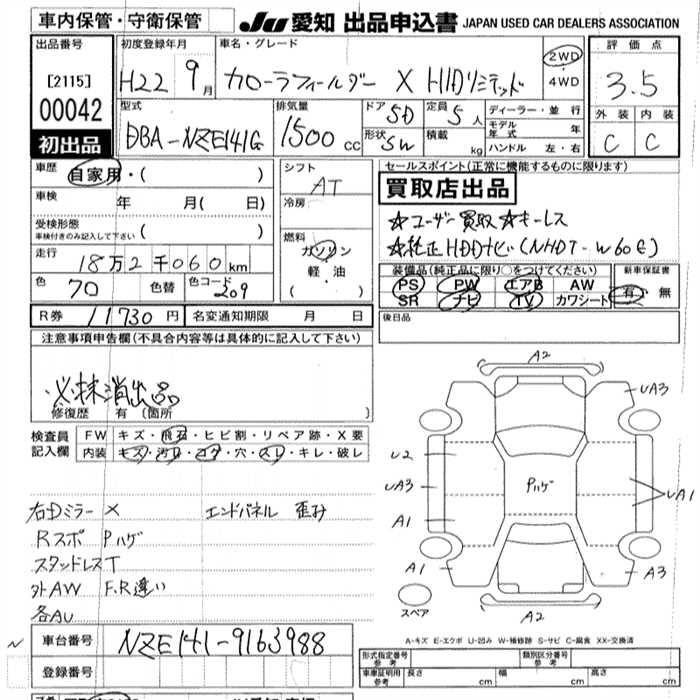 車内保管・守衛保管 JU 愛知 出品申込書 JAPAN USED CAR DEALERS ASSOCIATION
出品番号 初度登録年月 車名・グレード 評価点
[2115] H22 9月 カローラフィールダー X HIDリミテッド 2WD・4WD 3.5
00042 型式 排気量 ドア 5D 定員 5人 ディーラー・並行 外装 内装
初出品 DBA-NZE141G 1500cc 形状 SW 積載 kg モデル年式 年 C C
ハンドル 左・右
車歴 自家用・( ) シフト セールスポイント(正常に機能するものに限ります)
車検 年 月( 日) AT 買取店出品
冷房
受検形態 ( ) ☆ユーザー買取 ☆キーレス
車検付きのみ記入して下さい
走行 18万2千060km 燃料 ガソリン ☆純正HDDナビ(NHDT-W60G)
軽・油
色 70 色替 色コード 209 ( ) 装備品(純正品に限り○をつけてください) 新車保証書
PS PW エアB AW 有・無
SR ナビ TV カワシート
R券 11730円 名変通知期限 月 日 後日品
注意事項申告欄(不具合内容等は具体的に記入して下さい)
必抹消出品
修復歴 有(箇所 )
検査員 FW キズ・飛石・ヒビ割・リペア跡・X要
記入欄 内装 キズ・汚レ・コゲ・穴・スレ・キレ・破レ
右Dミラー X エンドパネル 歪み
Rスポ Pハゲ
スタッドレスT
外AW F.R違い
各AU
A2
UA3
U2
UA3 Pハゲ UA1
A1
A1 A3
スペア A2
A-キズ E-エクボ U-凹み W-補修跡 S-サビ C-腐食 XX-交換済
車台番号 NZE141-9163988
登録番号
形式指定番号 参考 類別区分番号 参考
車庫証明用 参考 長さ 幅 高さ